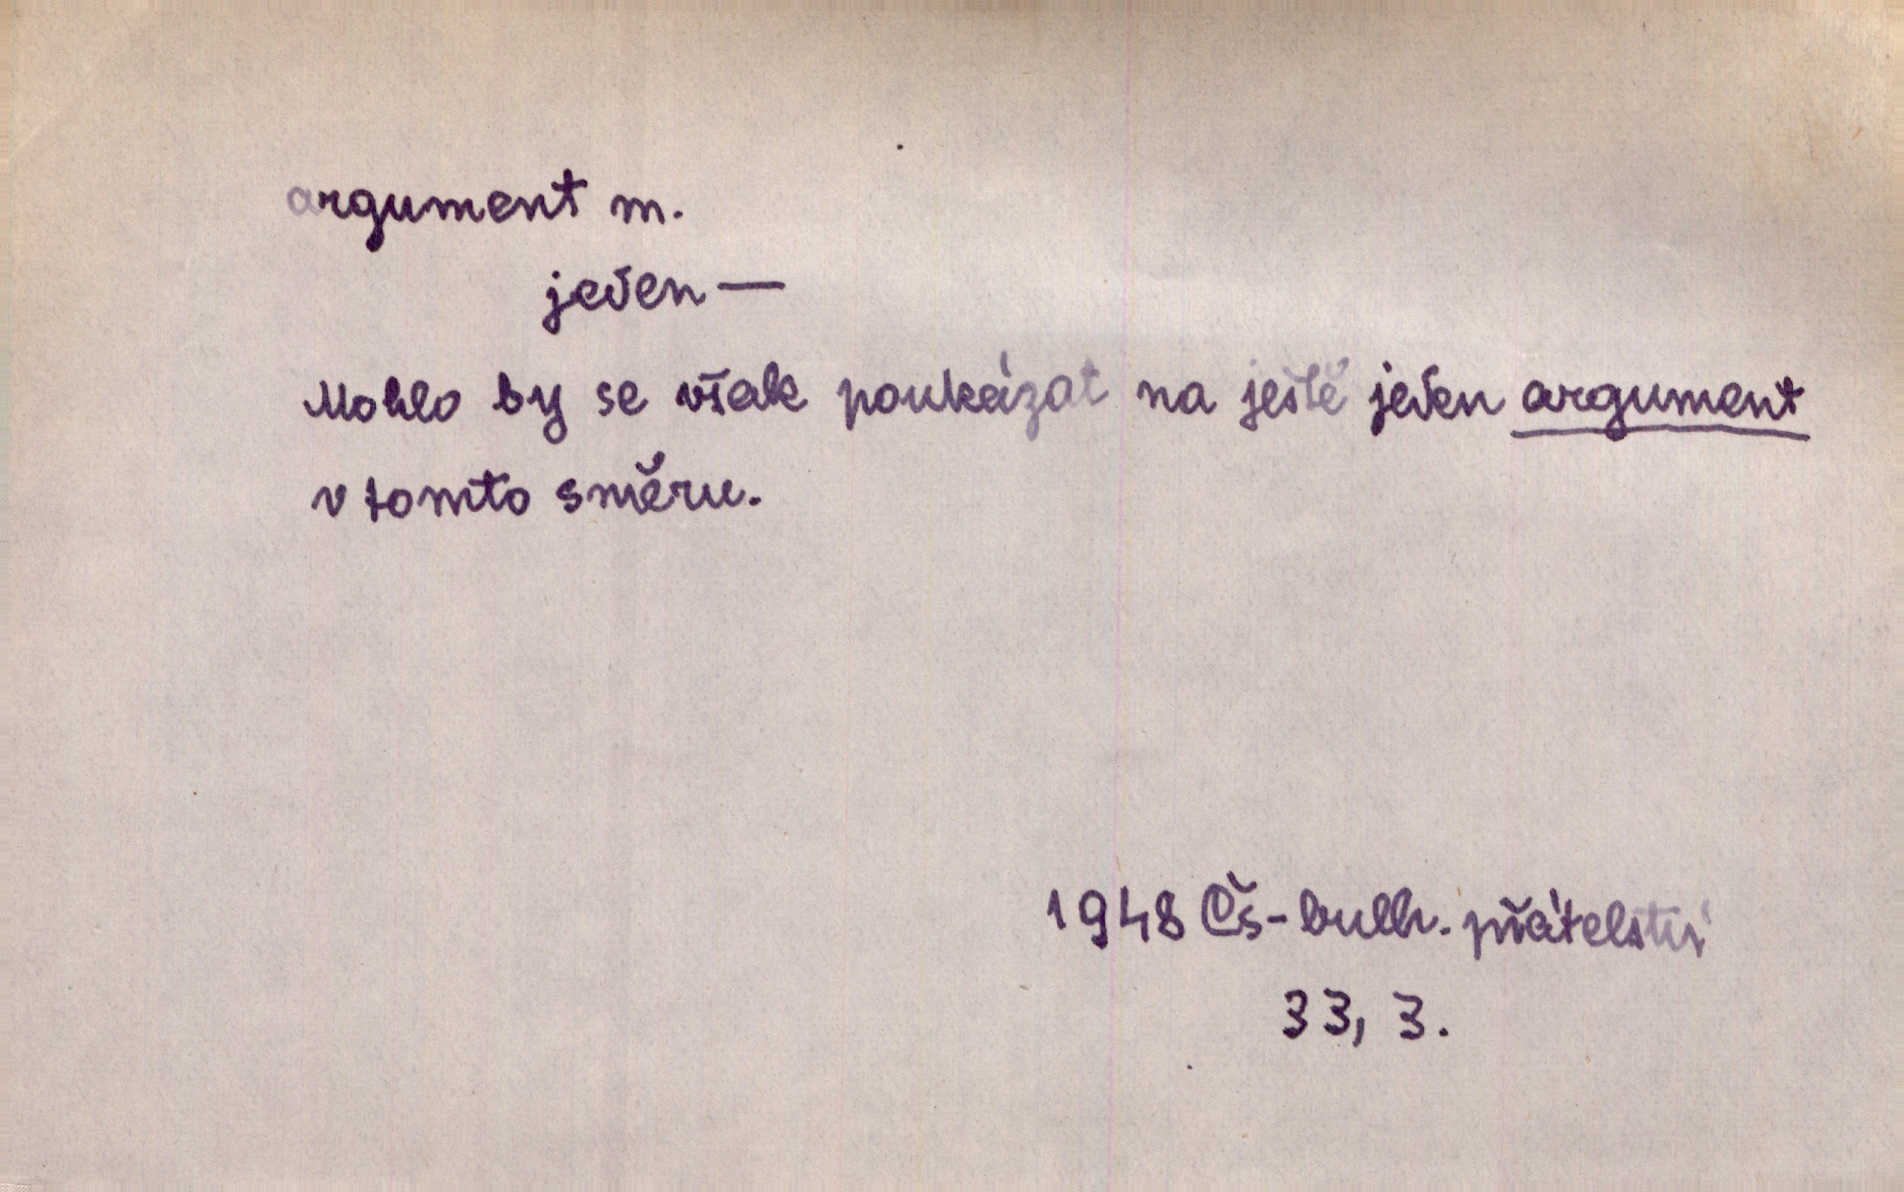 argument m.
jeden —
Mohlo by se však poukázat na ještě jeden argument
v tomto směru.
1948 Čs-bulh. přátelství
33, 3.